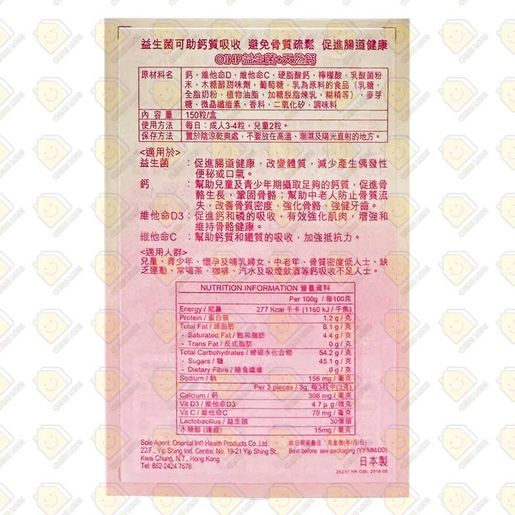 益生菌可助鈣質吸收 避免骨質疏鬆 促進腸道健康
QBB益生菌+天然鈣
原材料名
鈣，維他命D，維他命C，硬脂酸鈣，檸檬酸，乳酸菌粉
末，木糖醇甜味劑，葡萄糖，乳為原料的食品（乳糖，
全脂奶粉，植物油脂，加糖脫脂煉乳，糊精等），麥芽
糖，微晶纖維素，香料，二氧化矽，調味料
內容量
150粒/盒
使用方法
每日：成人3-4粒，兒童2粒。
保存方法
置於陰涼乾爽處，不要放在高溫、潮濕及陽光直射的地方。
<適用於>
益生菌 ：促進腸道健康，改變體質，減少產生偶發性
便秘或口氣。
鈣 ：幫助兒童及青少年期攝取足夠的鈣質，促進骨
骼生長，鞏固骨骼；幫助中老人防止骨質流
失，改善骨質密度，強化骨骼，強健牙齒。
維他命D3：促進鈣和磷的吸收，有效強化肌肉，增強和
維持骨骼健康。
維他命C ：幫助鈣質和鐵質的吸收，加強抵抗力。
<適用人群>
兒童、青少年、懷孕及哺乳婦女、中老年、骨質密度低人士、缺
乏運動，常喝茶、咖啡、汽水及吸煙飲酒等鈣吸收不足人士。
NUTRITION INFORMATION 營養資料
Per 100g / 每100克
Energy / 能量 277 Kcal 千卡 (1160 kJ / 千焦)
Protein / 蛋白質 1.2 g / 克
Total Fat / 總脂肪 8.1 g / 克
- Saturated Fat / 飽和脂肪 4.4 g / 克
- Trans Fat / 反式脂肪 0 g / 克
Total Carbohydrates / 總碳水化合物 54.2 g / 克
- Sugars / 糖 45.1 g / 克
- Dietary Fibre / 膳食纖維 0 g / 克
Sodium / 鈉 156 mg / 毫克
Per 3 pieces / 3g 每3粒中(3克)
Calcium / 鈣 306 mg / 毫克
Vit D3 / 維他命D3 4.7 μg / 微克
Vit C / 維他命C 79 mg / 毫克
Lactobacillus / 益生菌 30億個
木糖醇 15mg / 毫克
Sole Agent: Oriental Int'l Health Products Co. Ltd.
22/F., Yip Shing Ind. Centre, No. 19-21 Yip Shing St.,
Kwai Chung, N.T., Hong Kong
Tel: 852-2424 7676
Best before: see packaging (YY/MM/DD)
日本製